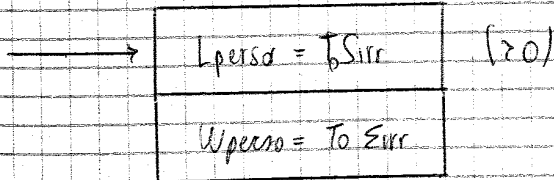 Lperso = T₀Sirr (≥0)
Wperso = To Σirr